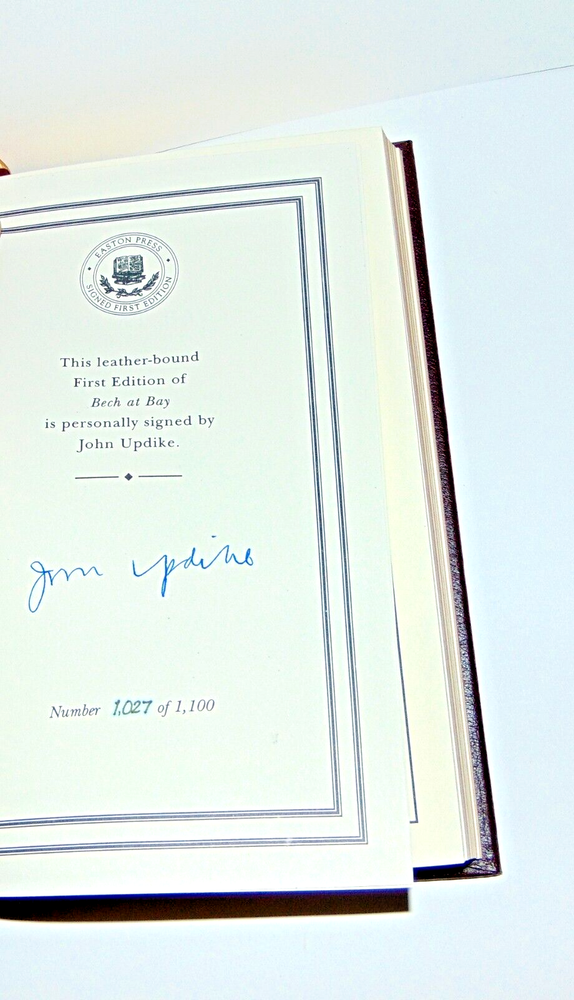 EASTON PRESS
SIGNED FIRST EDITION
This leather-bound
First Edition of
Bech at Bay
is personally signed by
John Updike.
John Updike
Number 1,027 of 1,100